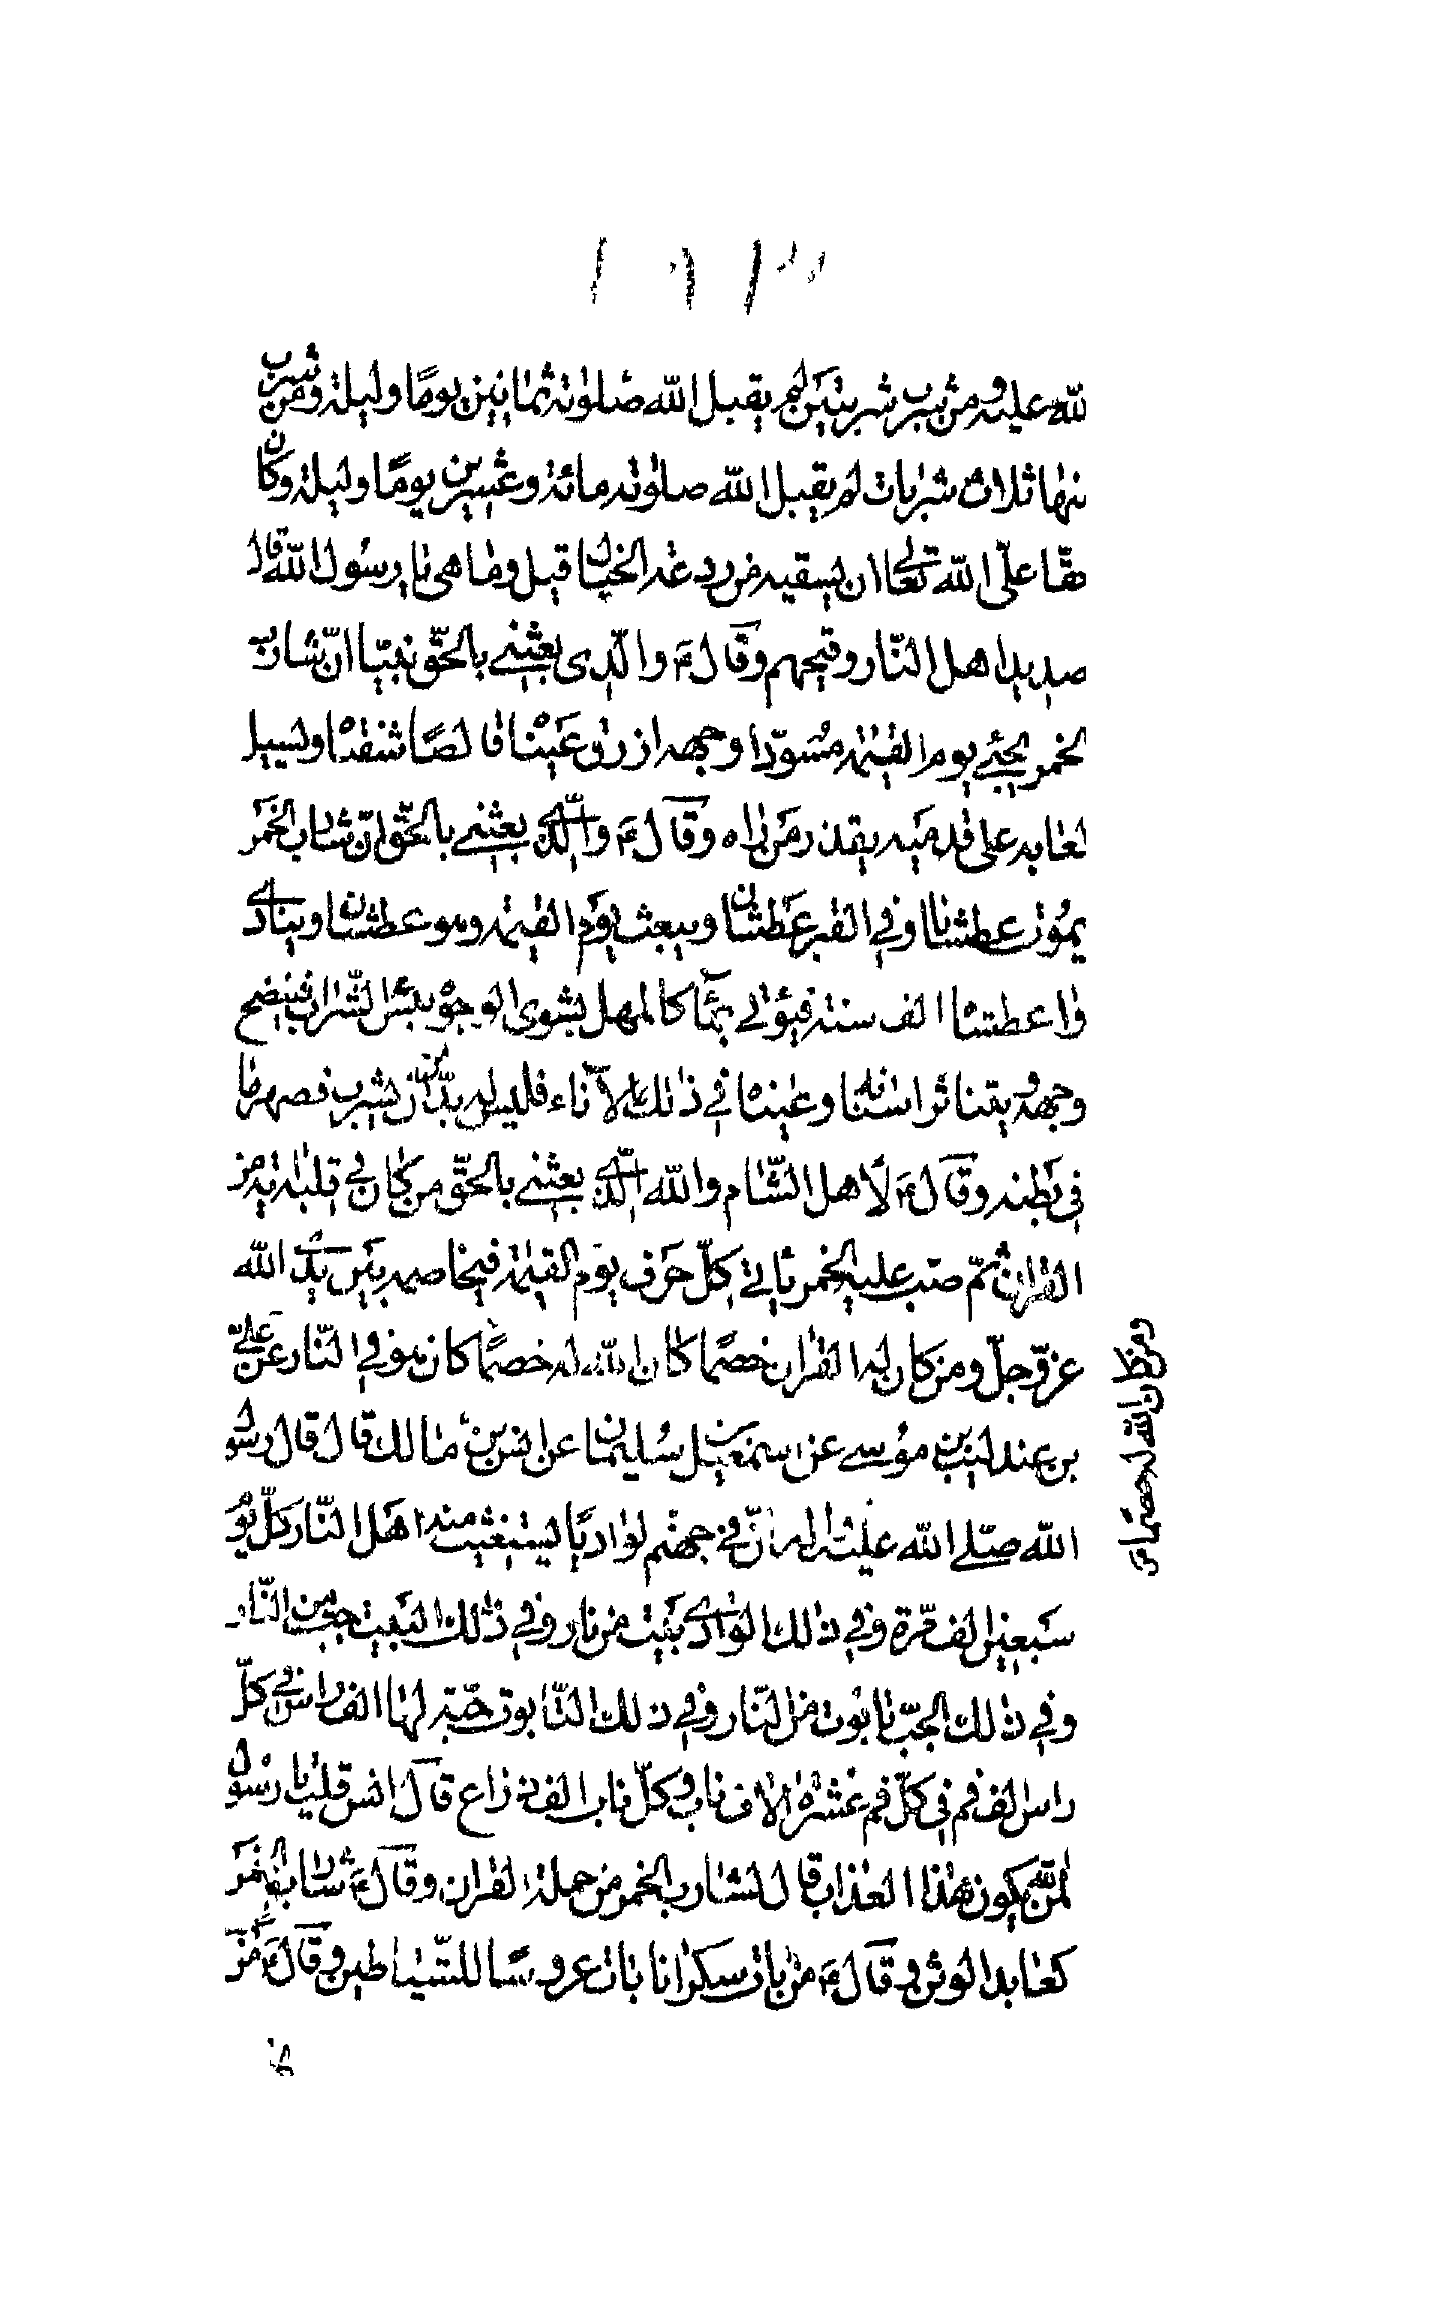 لله عليه ومن شرب شربتين لم يقبل الله صلوته ثمانين يوما وليلة ومن شرب
منها ثلاث شربات لم يقبل الله صلوته مائة وعشرين يومًا وليلة وكان
حقا على الله تعالى ان يسقيه من ردغة الخبال قيل وما هى يا رسول الله قال
صديد اهل النّار وقيحهم وقال ع والّذى بعثنى بالحقّ نبيّا انّ شارب
لخمر يجئ يوم القيٰمة مسوّدا وجهه ازرق عيناه قالصًا شفتاه ويسيل
لعابه على قدميه يقذر من راه وقال ع والّذى بعثنى بالحقّ انّ شارب الخمر
يموت عطشانا وفى القبر عطشان ويبعث يوم القيٰمة وهو عطشان وينادى
وا عطشاه الف سنة فيؤتى بماء كالمهل يشوى الوجوه بئس الشّراب فينضج
وجهه ويتناثر اسنانه وعيناه فى ذلك الاناء فليس له بدّ من ان يشرب فصهر ما
فى بطنه وقال ع لاهل الشّام والله الّذى بعثنى بالحقّ من كان فى قلبه اية من
القران ثمّ صبّ عليه الخمر ياتى كلّ حرف يوم القيٰمة فيخاصمه بين يدى الله
عزّ وجلّ ومن كان له القران خصمًا كان الله له خصمًا كان هو فى النّار عن علىّ
بن عند لينب بن موسى عن اسمعيل بن سليمان عن انس بن مالك قال قال رسول
الله صلّى الله عليه واله انّ فى جهنّم لواديًا يستغيث منه اهل النّار كلّ يوم
سبعين الف مرّة وفى ذلك الوادى بيت من نار وفى ذلك البيت جبّ من النّار
وفى ذلك الجبّ تابوت من النّار وفى ذلك التّابوت حيّة لها الف راس فى كلّ
راس الف فم فى كلّ فم عشرة الاف ناب وكلّ ناب الف ذراع قال انس قلت يا رسول
الله لمن يكون هذا العذاب قال لشارب الخمر من حملة القران وقال ع شارب الخمر
كعابد الوثن وقال ع من بات سكرانا بات عروسًا للشّياطين وقال ع من
ومن كان الله له خصمًا ص